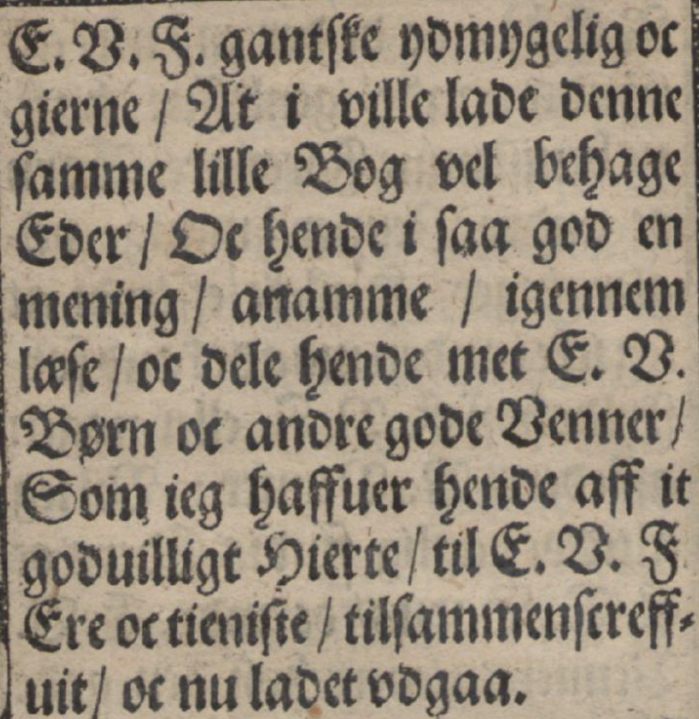 E. V. F. gantſke ydmygelig oc
gierne / At i ville lade denne
ſamme lille Bog vel behage
Eder / Oc hende i ſaa god en
mening / anamme / igennem
læſe / oc dele hende met E. V.
Børn oc andre gode Venner /
Som ieg haffuer hende aff it
goduilligt Hierte / til E. V. F
Ere oc tieniſte / tilſammenſcreff-
uit / oc nu ladet vdgaa.